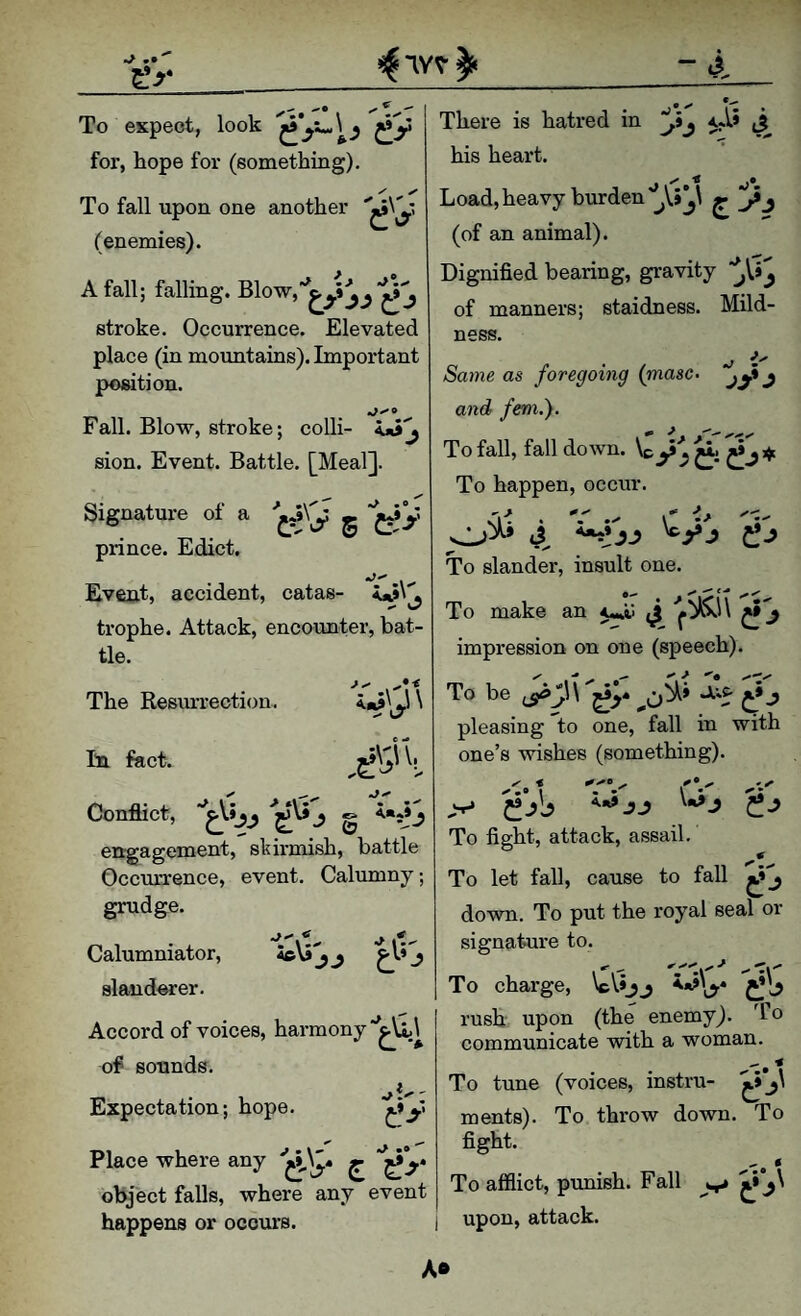 وقع ﴿٦٧٣﴾
To expect, look تَوَقَّعَ وَاسْتَوْقَعَ
for, hope for (something).
To fall upon one another تَوَاقَعَ
(enemies).
A fall; falling. Blow, وَقْعٌ وَوُقُوعٌ
stroke. Occurrence. Elevated
place (in mountains). Important
position.
Fall. Blow, stroke; colli- وَقْعَةٌ
sion. Event. Battle. [Meal].
Signature of a تَوْقِيعٌ ج تَوَاقِيعُ
prince. Edict.
Event, accident, catas- وَاقِعَةٌ
trophe. Attack, encounter, bat-
tle.
The Resurrection. أَلْوَاقِعَةُ
In fact. بِالْوَاقِعِ
Conflict, وَقِيعَةٌ ج وَقَائِعُ وَوِقَاعٌ
engagement, skirmish, battle
Occurrence, event. Calumny;
grudge.
Calumniator, وَقَّاعٌ وَوَقَّاعَةٌ
slanderer.
Accord of voices, harmony إِيقَاعٌ
of sounds.
Expectation; hope. تَوَقُّعٌ
Place where any مَوْقِعٌ ج مَوَاقِعُ
object falls, where any event
happens or occurs.
There is hatred in فِي قَلْبِهِ وَقْرٌ
his heart.
Load, heavy burden وِقْرٌ ج أَوْقَارٌ
(of an animal).
Dignified bearing, gravity وَقَارٌ
of manners; staidness. Mild-
ness.
Same as foregoing (masc. وَقُورٌ
and fem.).
To fall, fall down. ✻ وَقَعَ يَقَعُ وُقُوعًا
To happen, occur.
وَقَعَ وُقُوعًا وَوَقِيعَةً فِي فُلَانٍ
To slander, insult one.
To make an وَقَعَ الْكَلَامُ فِي نَفْسِهِ
impression on one (speech).
To be وَقَعَ عِنْدَ فُلَانٍ مَوْقِعَ الرِّضَى
pleasing to one, fall in with
one's wishes (something).
وَقَعَ وَقْعًا وَوَقْعَةً وَأَوْقَعَ بِ
To fight, attack, assail.
To let fall, cause to fall وَقَّعَ
down. To put the royal seal or
signature to.
To charge, وَاقَعَ مُوَاقَعَةً وَوِقَاعًا
rush upon (the enemy). To
communicate with a woman.
To tune (voices, instru- أَوْقَعَ
ments). To throw down. To
fight.
To afflict, punish. Fall أَوْقَعَ بِ
upon, attack.
٨٥